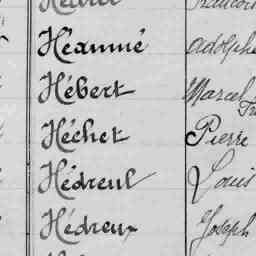 Héaumé Adolphe
Hébert Marcel
Héchet Pierre
Hédreul Louis
Hédreux Joseph